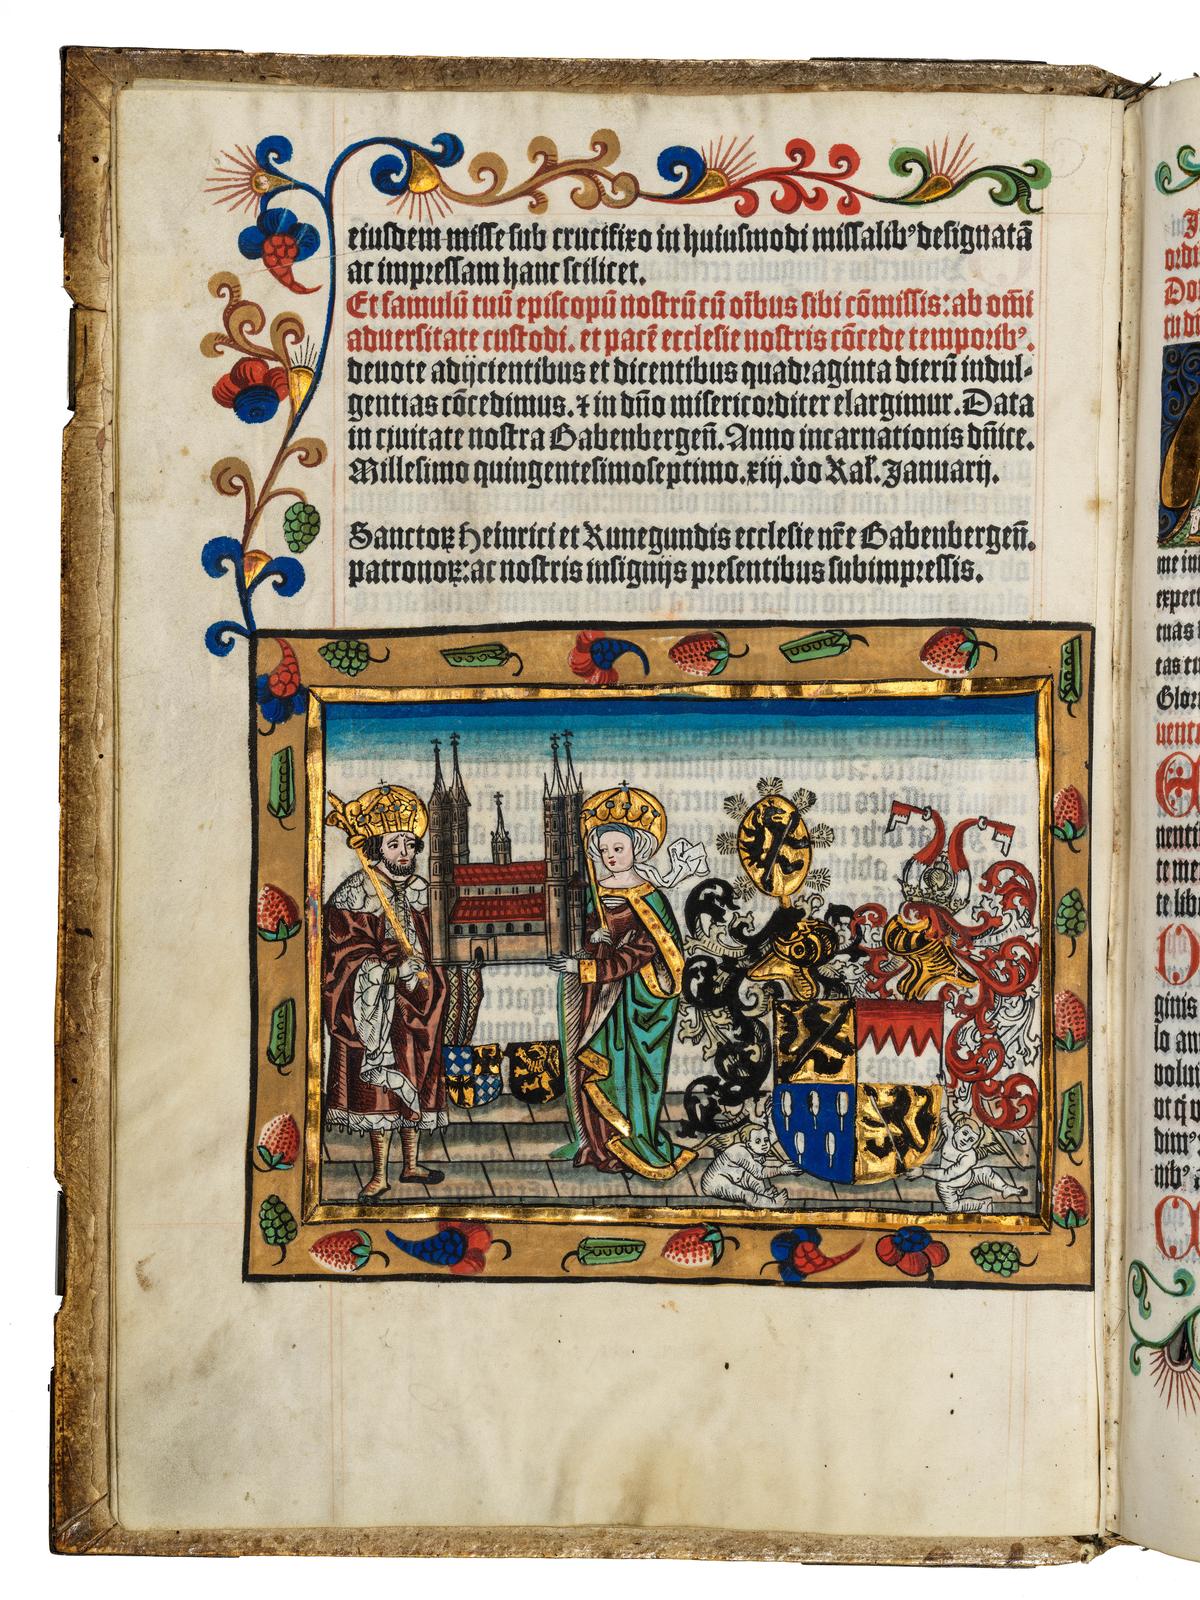 eiusdem misse sub crucifixo in huiusmodi missalibꝰ designatā
ac impressam hanc scilicet.
Et famulū tuū episcopū nostrū cū oībus sibi cōmissis: ab om̄i
adversitate custodi. et pacē ecclesie nostris cōcede temporibꝰ.
devote adijcientibus et dicentibus quadraginta dierū indul-
gentias cōcedimus. ⁊ in dn̄o misericorditer elargimur. Data
in ciuitate nostra Babenbergen̄. Anno incarnationis dn̄ice.
Millesimo quingentesimoseptimo. xiij. v̊o Kal'. Januarij.
Sanctoꝝ Heinrici et Kunegundis ecclesie nr̄e Babenbergen̄.
patronoꝝ: ac nostris insignijs presentibus subimpressis.
me in
expect
tuas
tas tu
Glori
uent
nenti
te me
te lib
ginis
lo an
volui